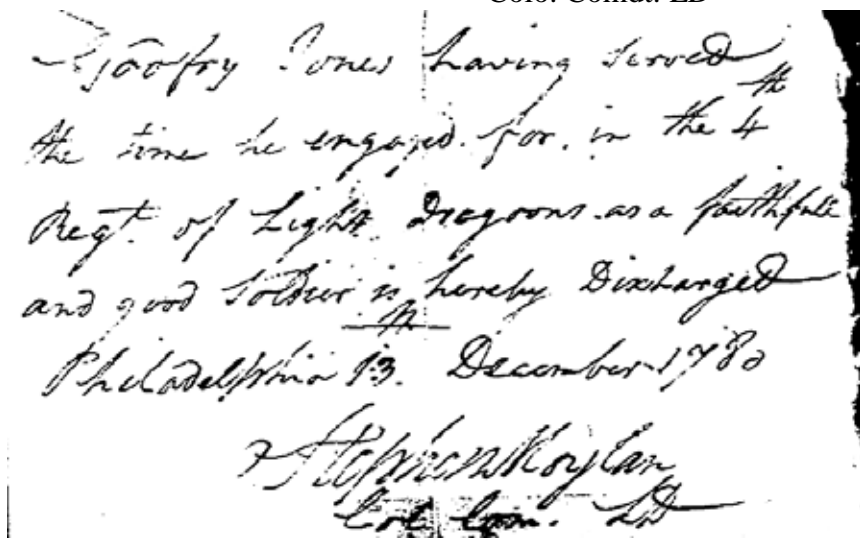 Colo. Comdt. LD
Godfry Jones having served
the time he engaged for. in the 4th
Regt. of Light Dragoons as a faithfull
and good Soldier is hereby Discharged
Philadelphia 13th. December 1780
Stephen Moylan
Col Com. LD